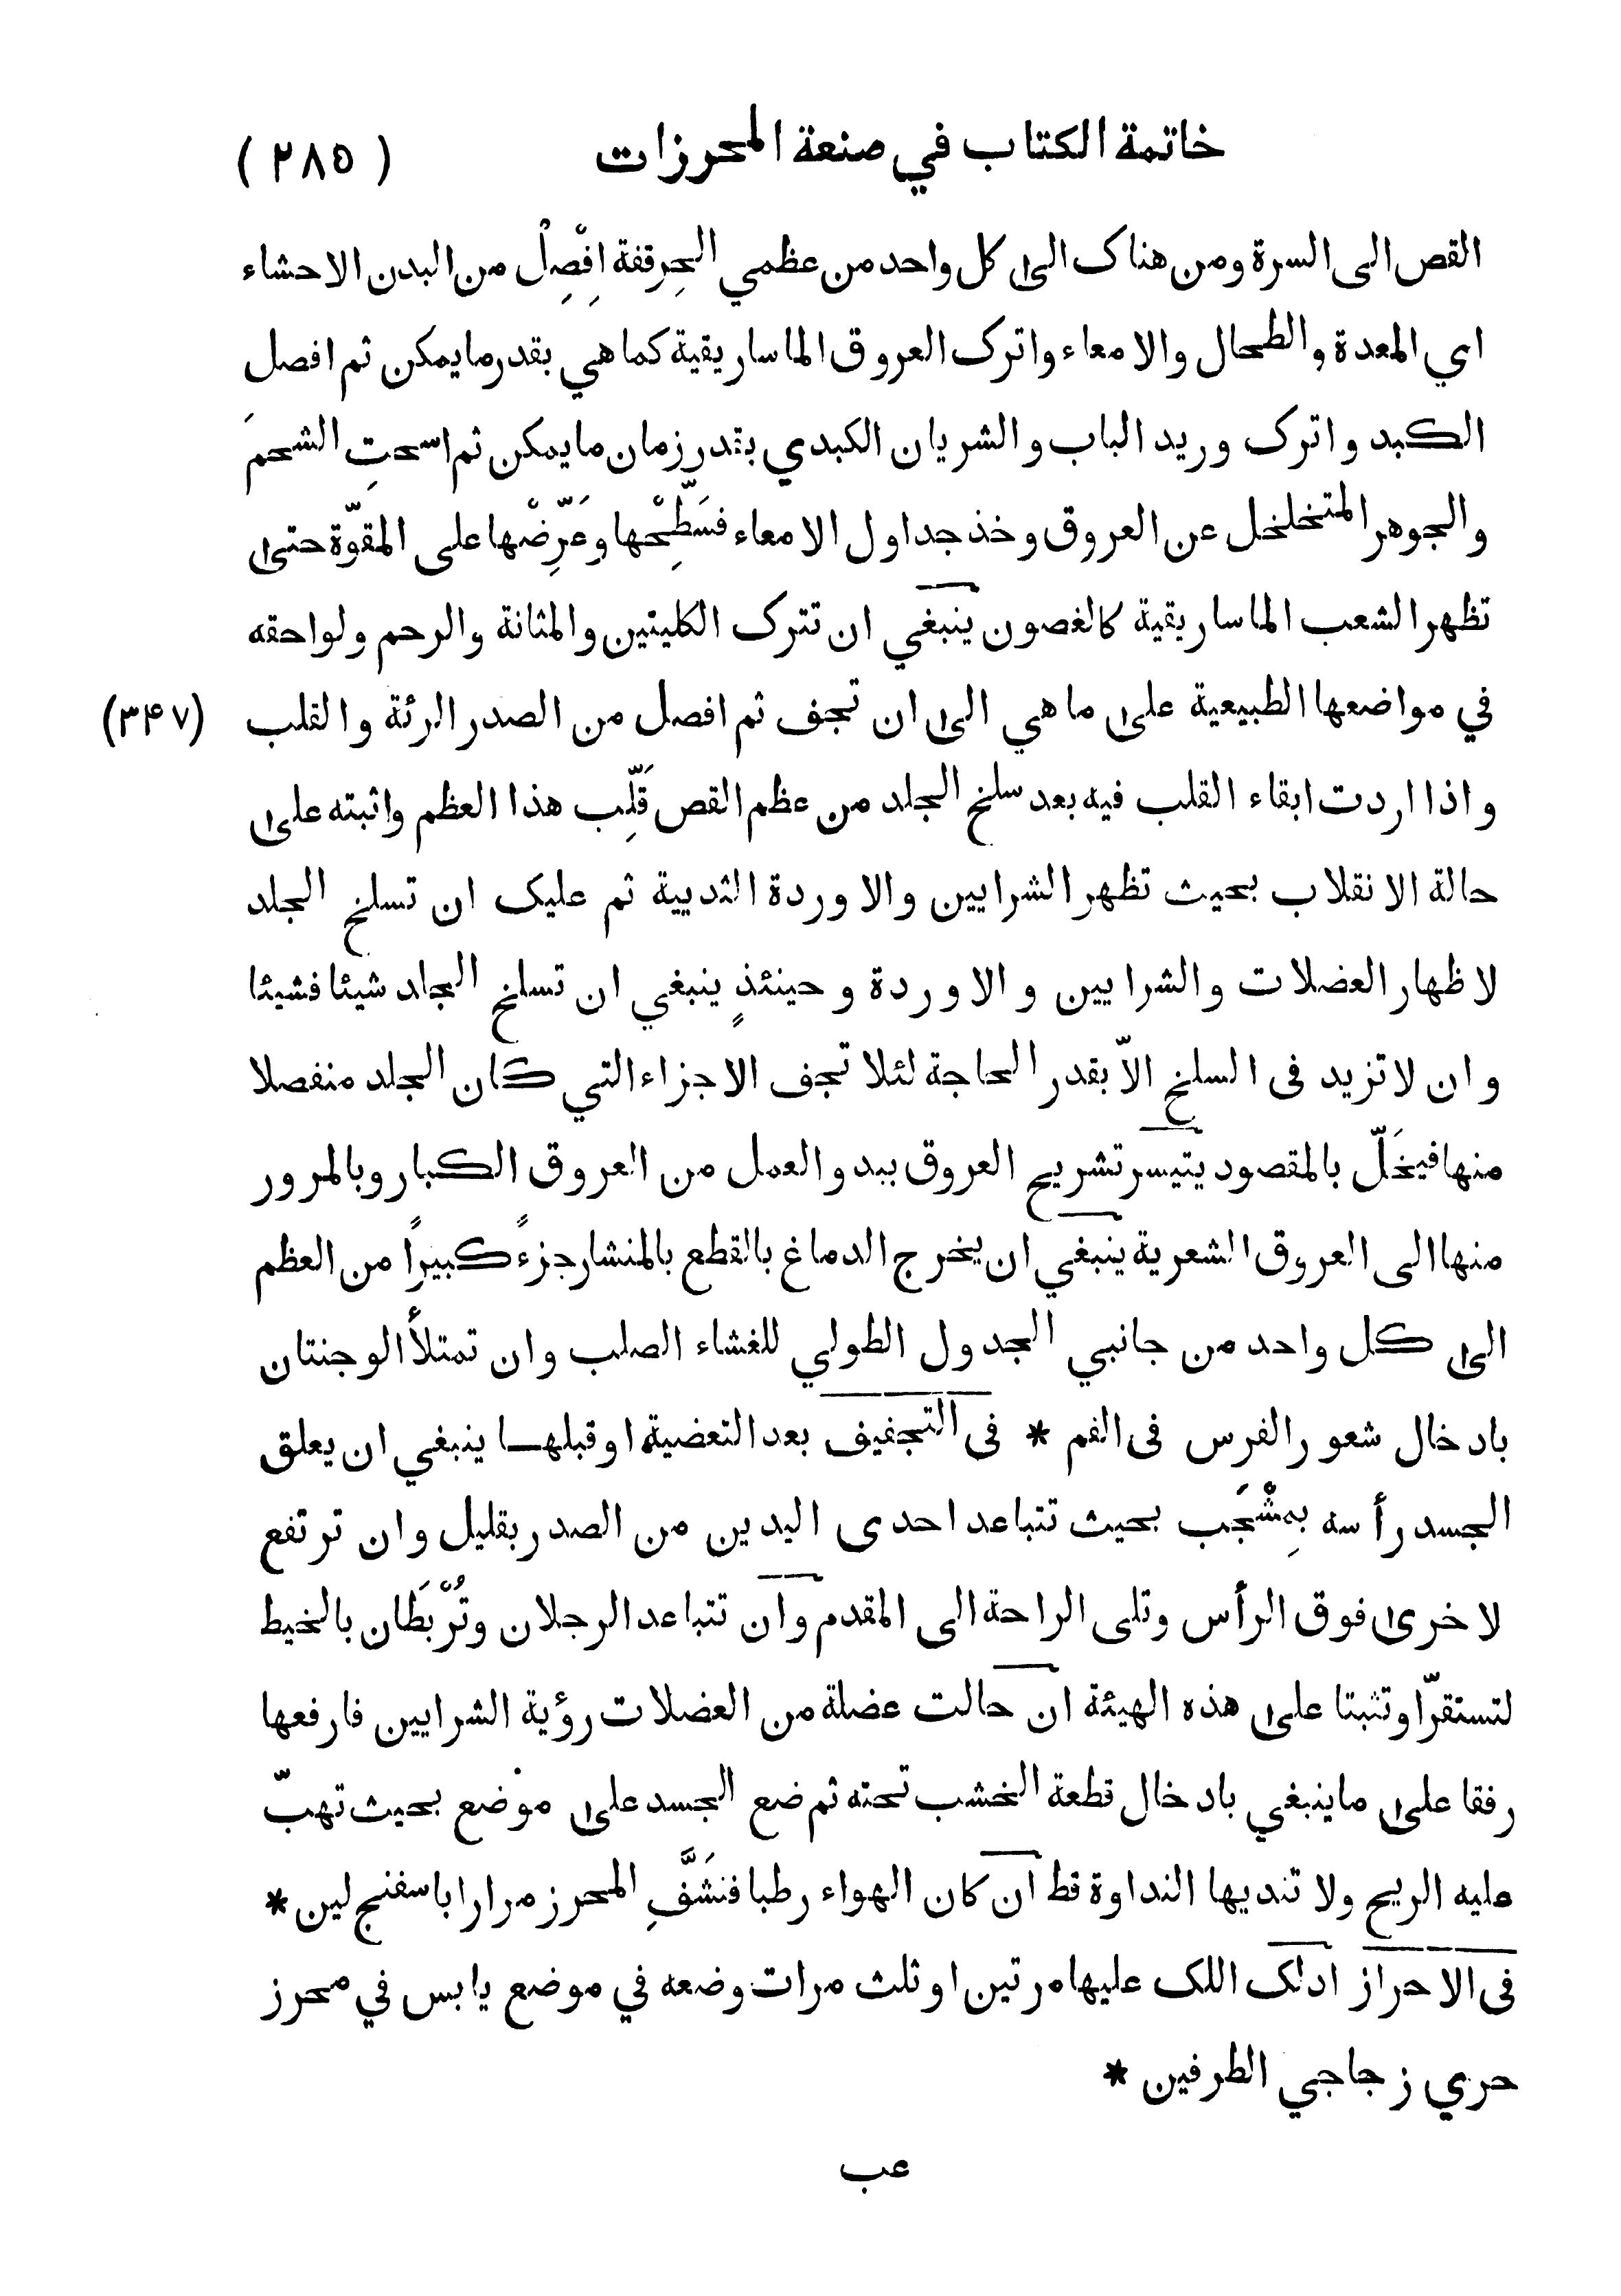 خاتمة الكتاب في صنعة المحرزات (٢٨٥)
القص الى السرة ومن هناك الى كل واحد من عظمي الحِرقفة اِفْصِلْ من البدن الاحشاء
اي المعدة والطحال والامعاء واترك العروق الماساريقية كما هي بقدر ما يمكن ثم افصل
الكبد واترك وريد الباب والشريان الكبدي بقدر زمان ما يمكن ثم اسحتِ الشحمَ
والجوهر المتخلخل عن العروق وخذ جداول الامعاء فسَطِّحْها وعَرِّضْها على المقوّة حتى
تظهر الشعب الماساريقية كالغصون ينبغي ان تترك الكليتين والمثانة والرحم ولواحقه
في مواضعها الطبيعية على ما هي الى ان تجف ثم افصل من الصدر الرئة والقلب (٣۴٧)
واذا اردت ابقاء القلب فيه بعد سلخ الجلد من عظم القص قَلِّب هذا العظم واثبته على
حالة الانقلاب بحيث تظهر الشرايين والاوردة الثديية ثم عليك ان تسلخ الجلد
لاظهار العضلات والشرايين والاوردة وحينئذٍ ينبغي ان تسلخ الجلد شيئا فشيئا
وان لا تزيد فى السلخ الاّ بقدر الحاجة لئلا تجف الاجزاء التي كان الجلد منفصلا
منها فيخَلّ بالمقصود يتيسر تشريح العروق ببدو العمل من العروق الكبار وبالمرور
منها الى العروق الشعرية ينبغي ان يخرج الدماغ بالقطع بالمنشار جزءً كبيراً من العظم
الى كل واحد من جانبي الجدول الطولي للغشاء الصلب وان تمتلأ الوجنتان
بادخال شعور الفرس فى الفم * فى التجفيف بعد التعضية او قبلها ينبغي ان يعلق
الجسد رأسه بِمِشْجَب بحيث تتباعد احدى اليدين من الصدر بقليل وان ترتفع
لاخرى فوق الرأس وتلى الراحة الى المقدم وان تتباعد الرجلان وتُرْبَطَان بالخيط
لتستقرّا وتثبتا على هذه الهيئة ان حالت عضلة من العضلات رؤية الشرايين فارفعها
رفقا على ما ينبغي بادخال قطعة الخشب تحته ثم ضع الجسد على موضع بحيث تهبّ
عليه الريح ولا تنديها النداوة قط ان كان الهواء رطبا فنَشَّفِ المحرز مرارا باسفنج لين *
فى الاحراز ادلك اللك عليها مرتين او ثلث مرات وضعه في موضع يابس في محرز
حري زجاجي الطرفين *
عب